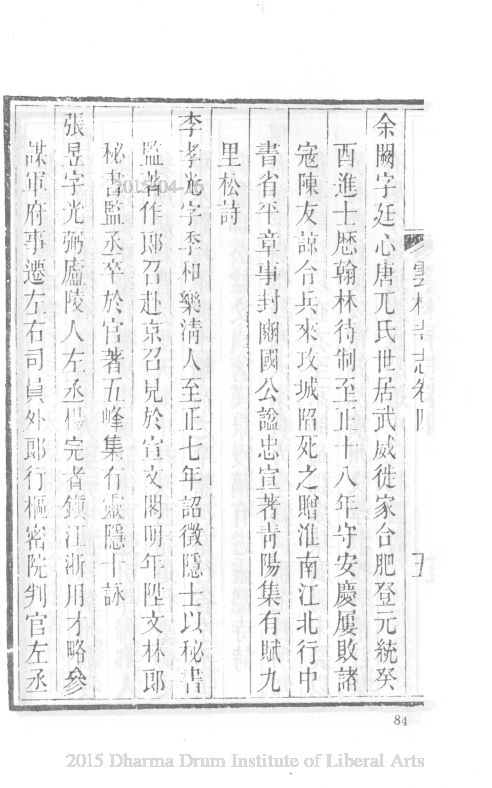 雲林寺志卷四
五
余闕字廷心唐兀氏世居武威徙家合肥登元統癸
酉進士歷翰林待制至正十八年守安慶屢敗諸
寇陳友諒合兵來攻城陷死之贈淮南江北行中
書省平章事封豳國公諡忠宣著靑陽集有賦九
里松詩
李孝光字季和樂淸人至正七年詔徵隱士以秘書
監著作郎召赴京召見於宣文閣明年陞文林郎
秘書監丞卒於官著五峰集有靈隱十詠
張昱字光弼廬陵人左丞楊完者鎮江浙用才略參
謀軍府事遷左右司員外郎行樞密院判官左丞
2015-04-16
84
2015 Dharma Drum Institute of Liberal Arts